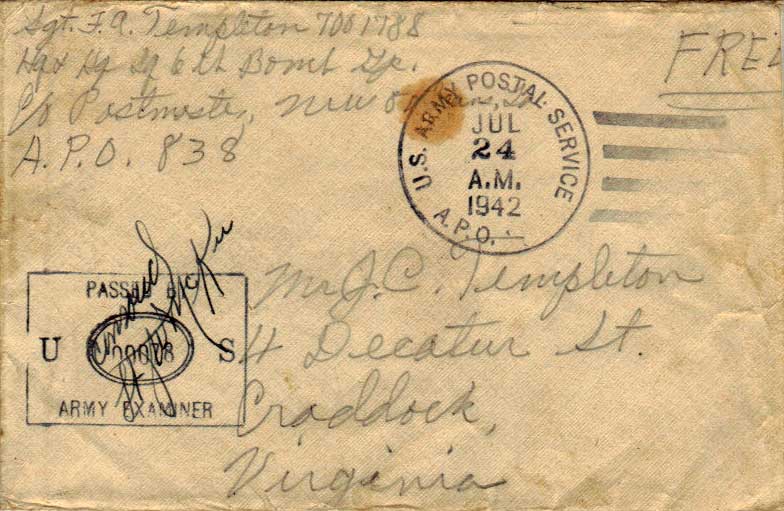 Sgt. F. A. Templeton 7001788
Hq & Hq Sq 6th Bomb Gp.
c/o Postmaster, New Orleans, La
A.P.O. 838
FREE
U.S. ARMY POSTAL SERVICE
JUL
24
A.M.
1942
A.P.O.
PASSED BY
U S
ARMY EXAMINER
Mr J. C. Templeton
4 Decatur St.
Craddock,
Virginia